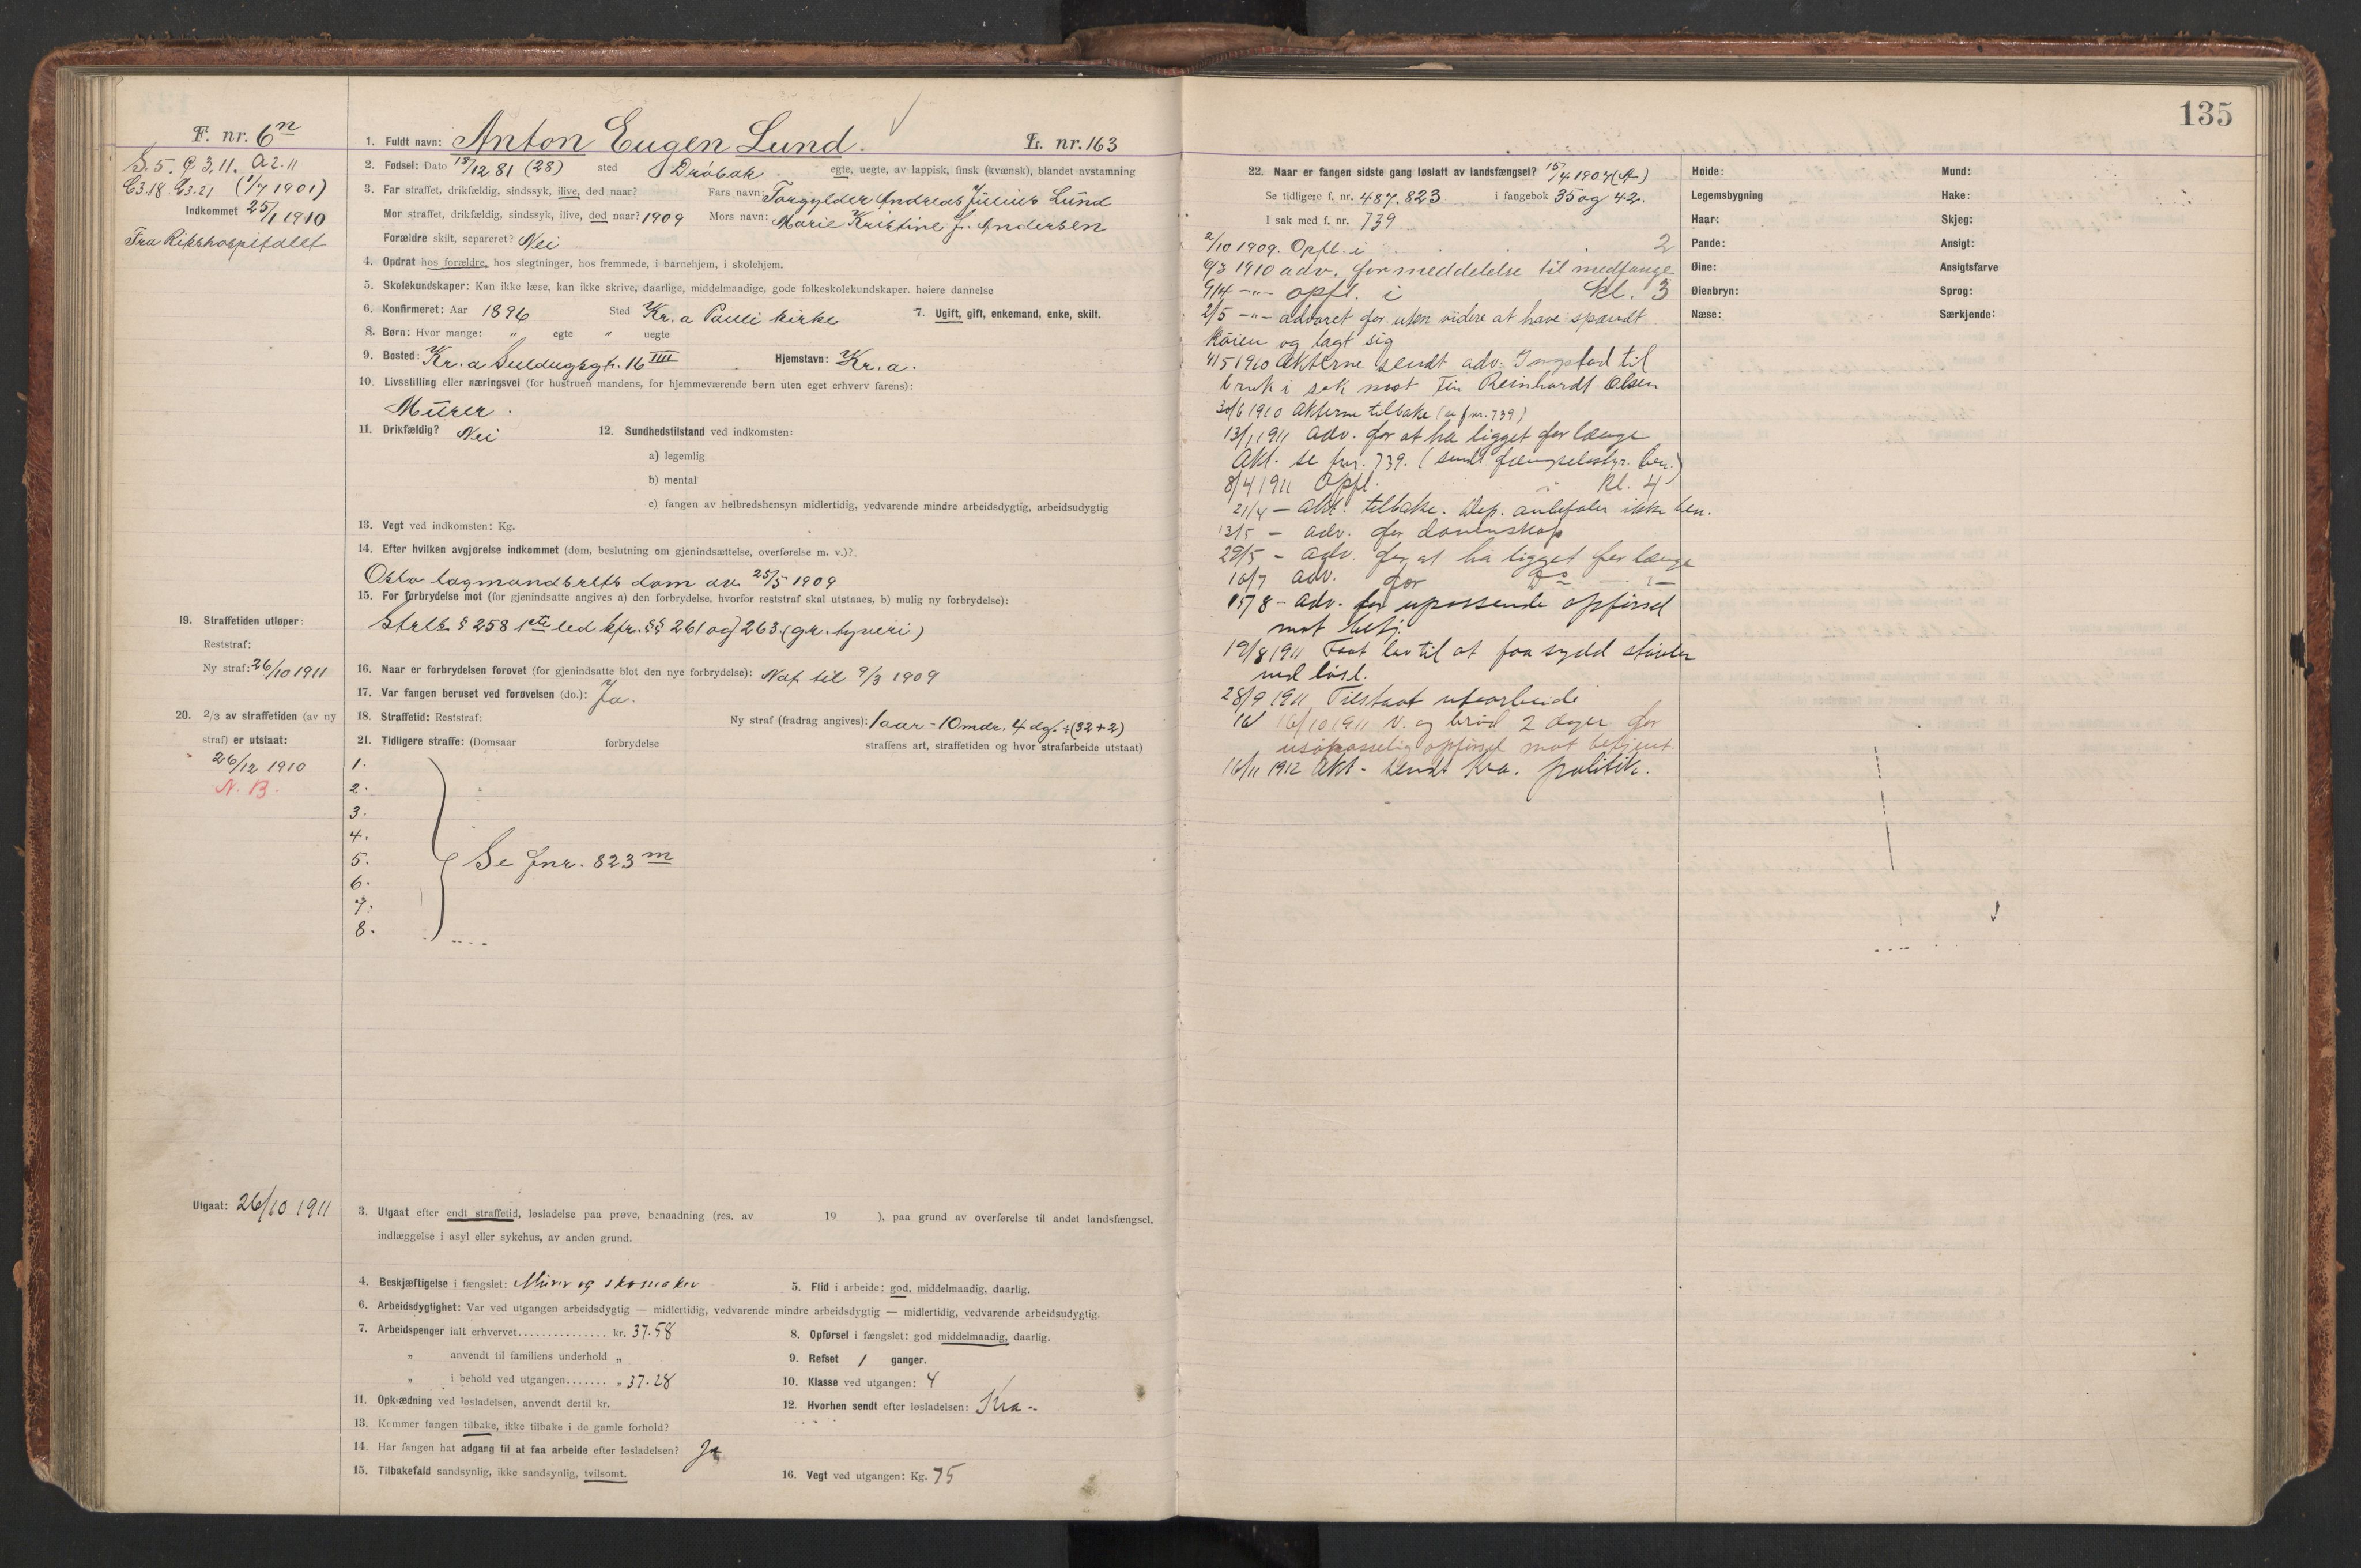 135
F. nr. 6n
S. 5. C 3. 11. A 2. 11
C3.18 C3.21 (1/7 1901)
Indkommet 25/1 1910
Fra Rikshospitalet
1. Fuldt navn: Anton Eugen Lund. L. nr. 163
2. Fødsel: Dato 18/12 81 (28) sted Drøbak egte, uegte, av lappisk, finsk (kvænsk), blandet avstamning
3. Far straffet, drikfældig, sindssyk, ilive, død naar? Fars navn: Forgylder Andreas Julius Lund
Mor straffet, drikfældig, sindssyk, ilive, død naar? 1909 Mors navn: Marie Kristine f. Andersen
Forældre skilt, separeret? Nei
4. Opdrat hos forældre, hos slegtninger, hos fremmede, i barnehjem, i skolehjem.
5. Skolekundskaper: Kan ikke læse, kan ikke skrive, daarlige, middelmaadige, gode folkeskolekundskaper. høiere dannelse
6. Konfirmeret: Aar 1896 Sted Kr.a Pauli kirke 7. Ugift, gift, enkemand, enke, skilt.
8. Børn: Hvor mange: " egte " uegte
9. Bosted: Kr.a Gt. 16 IIII Hjemstavn: Kr.a.
10. Livsstilling eller næringsvei (for hustruen mandens, for hjemmeværende børn uten eget erhverv farens):
Murer.
11. Drikfældig? Nei 12. Sundhedstilstand ved indkomsten:
a) legemlig
b) mental
c) fangen av helbredshensyn midlertidig, vedvarende mindre arbeidsdygtig, arbeidsudygtig
13. Vegt ved indkomsten: Kg.
14. Efter hvilken avgjørelse indkommet (dom, beslutning om gjenindsættelse, overførelse m. v.)?
Oslo lagmandsretts dom av 25/5 1909
15. For forbrydelse mot (for gjenindsatte angives a) den forbrydelse, hvorfor reststraf skal utstaaes, b) mulig ny forbrydelse):
Strls § 258 1ste led kfr. §§ 261 og 263. (gr. tyveri)
16. Naar er forbrydelsen forøvet (for gjenindsatte blot den nye forbrydelse): Nat til 9/3 1909
17. Var fangen beruset ved forøvelsen (do.): Ja.
18. Straffetid: Reststraf: Ny straf (fradrag angives): 1 aar - 10 mdr. 4 dg. ÷ (32+2)
19. Straffetiden utløper:
Reststraf:
Ny straf: 26/10 1911
20. 2/3 av straffetiden (av ny
straf) er utstaat:
26/12 1910
N. B.
21. Tidligere straffe: (Domsaar forbrydelse straffens art, straffetiden og hvor strafarbeide utstaat)
1.
2.
3.
4.
5. Se fnr. 823 m
6.
7.
8.
Utgaat: 26/10 1911
3. Utgaat efter endt straffetid, løsladelse paa prøve, benaadning (res. av 19 ), paa grund av overførelse til andet landsfængsel,
indlæggelse i asyl eller sykehus, av anden grund.
4. Beskjæftigelse i fængslet: Murer og skomaker 5. Flid i arbeide: god, middelmaadig, daarlig.
6. Arbeidsdygtighet: Var ved utgangen arbeidsdygtig — midlertidig, vedvarende mindre arbeidsdygtig — midlertidig, vedvarende arbeidsudygtig.
7. Arbeidspenger ialt erhvervet............... kr. 37.58 8. Opførsel i fængslet: god middelmaadig, daarlig.
" anvendt til familiens underhold " 9. Refset 1 ganger.
" i behold ved utgangen....... " 37.28 10. Klasse ved utgangen: 4
11. Opklædning ved løsladelsen, anvendt dertil kr. 12. Hvorhen sendt efter løsladelsen: Kra -
13. Kommer fangen tilbake, ikke tilbake i de gamle forhold?
14. Har fangen hat adgang til at faa arbeide efter løsladelsen? Ja
15. Tilbakefald sandsynlig, ikke sandsynlig, tvilsomt. 16. Vegt ved utgangen: Kg. 75
22. Naar er fangen sidste gang løslatt av landsfængsel? 15/4 1907 (A)
Se tidligere f. nr. 487. 823 i fangebok 35 og 42.
I sak med f. nr. 739
2/10 1909. Opfl. i 2
6/3 1910 adv. for meddelelse til medfange
9/4 -"- opfl. i kl. 3
2/5 -"- advaret for uten videre at have spændt
Køien og lagt sig
4/5 1910 Akterne sendt adv. Ingstad til
bruk i sak mot Fin Reinhardt Olsen
30/6 1910 Akterne tilbake (se fnr. 739)
13/1 1911 adv. for at ha ligget for længe
Akt. se fnr. 739. (sendt fængselsstyr. ben.)
8/4 1911 Opfl. i Kl. 4
21/4 - akt. tilbake. Dep. anbefaler ikke ben.
13/5 - adv. for dovenskap
29/5 - adv. for at ha ligget for længe
10/7 adv. for Do
15/8 - adv. for upassende opførsel
mot betj.
19/8 1911 Faat lov til at faa sydd støvler
ved løsl.
28/9 1911 Tilstaat utearbeide
16/ 16/10 1911 V. og brød 2 dager for
opførsel mot betjent.
16/11 1912 Akt - sendt Kra. politik.
Høide: Mund:
Legemsbygning Hake:
Haar: Skjeg:
Pande: Ansigt:
Øine: Ansigtsfarve
Øienbryn: Sprog:
Næse: Særkjende: